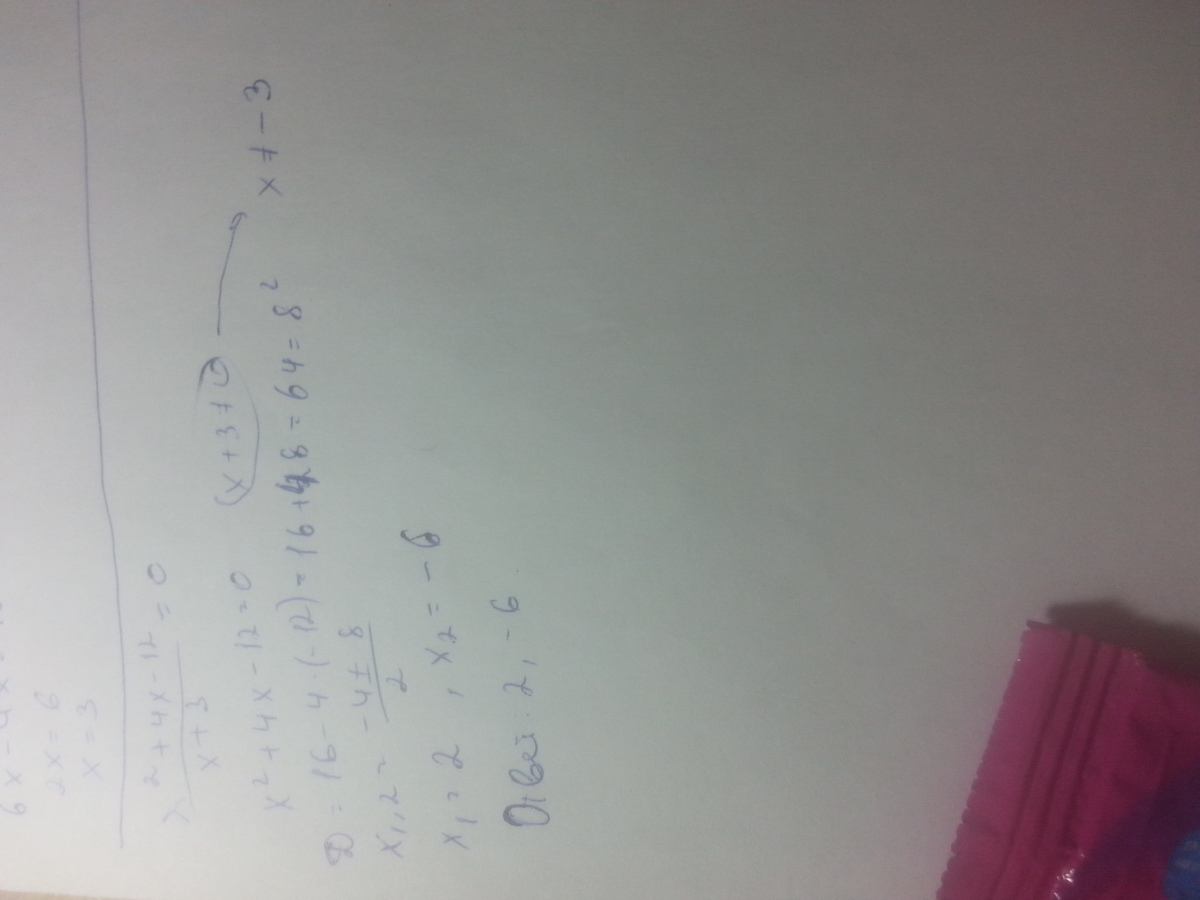 6x - 4x
2x = 6
x = 3
x² + 4x - 12 / x + 3 = 0
x² + 4x - 12 = 0 (x + 3 ≠ 0 → x ≠ -3
D = 16 - 4·(-12) = 16 + 48 = 64 = 8²
x₁,₂ = -4 ± 8 / 2
x₁ = 2 , x₂ = -6
Ответ: 2, -6.